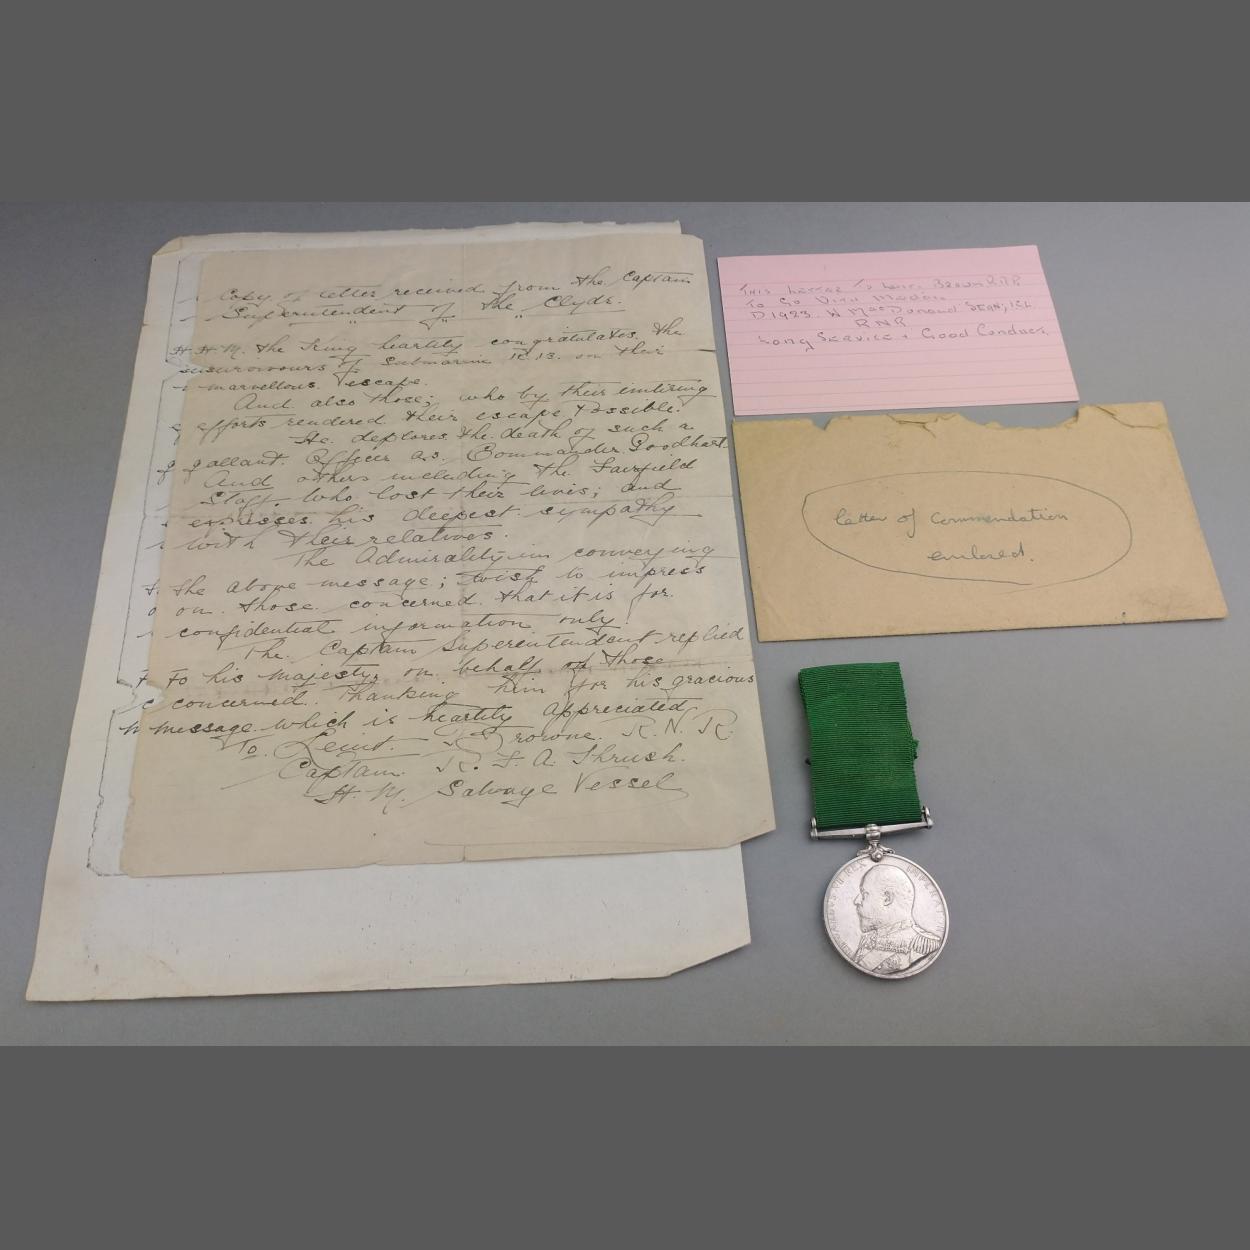 Copy of letter received from the Captain
Superintendent of the Clyde.
H.M. the King heartily congratulates the
survivours of Submarine K.13. on their
marvellous escape.
And also those; who by their untiring
efforts rendered their escape possible.
He deplores the death of such a
gallant Officer as Commander Goodhart
And others including the Fairfield
Staff who lost their lives; and
expresses his deepest sympathy
with their relatives.
The Admirality in conveying
the above message; wish to impress
on those concerned that it is for
confidential information only.
The Captain Superintendent replied
To his majesty, on behalf of those
concerned. Thanking him for his gracious
message which is heartily appreciated
To Leiut. Browne. R.N.R.
Captain R. F. A. Thrush.
H.M. Salvage Vessel
THIS LETTER TO Leiu. BROWN RNR
TO GO WITH MEDAL
D1923. W MacDonald SEAN, 1CL
RNR
Long SERVICE + Good Conduct
letter of commendation
enclosed.
EDWARDVS VII REX IMPERATOR